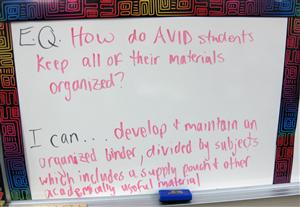 E.Q. How do AVID students
keep all of their materials
organized?
I can... develop & maintain an
organized binder, divided by subjects
which includes a supply pouch & other
academically useful material